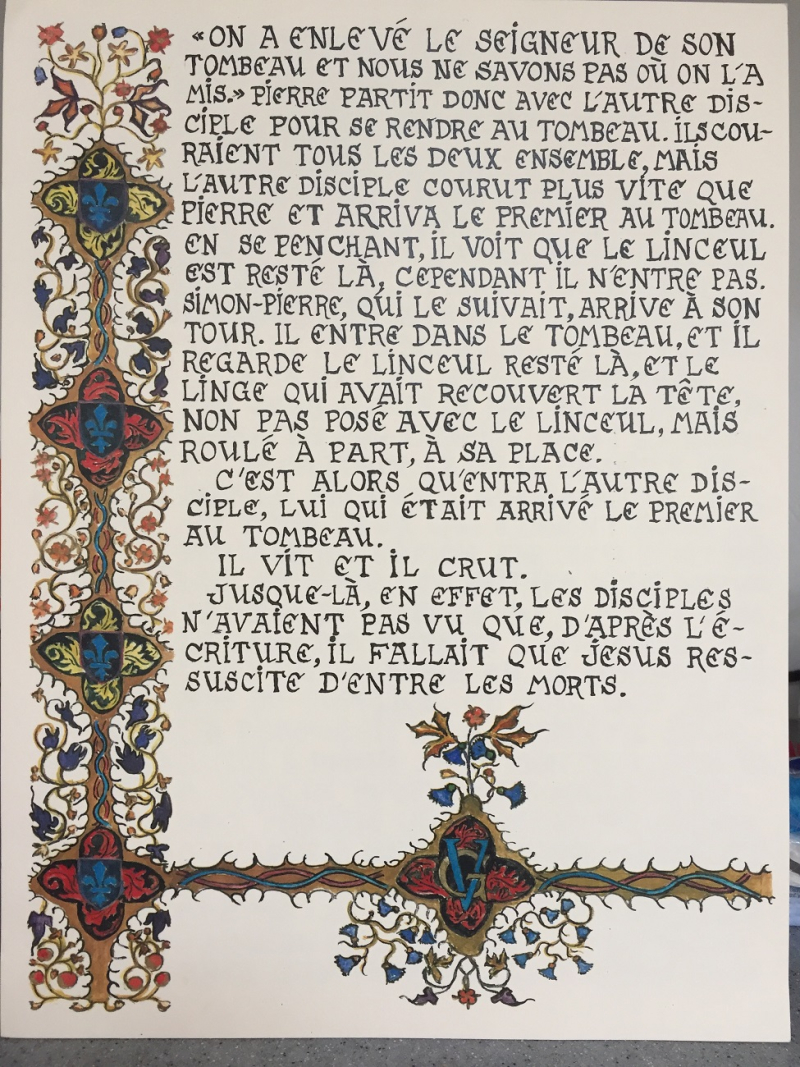 «ON A ENLEVÉ LE SEIGNEUR DE SON
TOMBEAU ET NOUS NE SAVONS PAS OÙ ON L'A
MIS.» PIERRE PARTIT DONC AVEC L'AUTRE DIS-
CIPLE POUR SE RENDRE AU TOMBEAU. ILS COU-
RAIENT TOUS LES DEUX ENSEMBLE, MAIS
L'AUTRE DISCIPLE COURUT PLUS VITE QUE
PIERRE ET ARRIVA LE PREMIER AU TOMBEAU.
EN SE PENCHANT, IL VOIT QUE LE LINCEUL
EST RESTÉ LÀ, CEPENDANT IL N'ENTRE PAS.
SIMON-PIERRE, QUI LE SUIVAIT, ARRIVE À SON
TOUR. IL ENTRE DANS LE TOMBEAU, ET IL
REGARDE LE LINCEUL RESTÉ LÀ, ET LE
LINGE QUI AVAIT RECOUVERT LA TÊTE,
NON PAS POSÉ AVEC LE LINCEUL, MAIS
ROULÉ À PART, À SA PLACE.
C'EST ALORS QU'ENTRA L'AUTRE DIS-
CIPLE, LUI QUI ÉTAIT ARRIVÉ LE PREMIER
AU TOMBEAU.
IL VIT ET IL CRUT.
JUSQUE-LÀ, EN EFFET, LES DISCIPLES
N'AVAIENT PAS VU QUE, D'APRÈS L'É-
CRITURE, IL FALLAIT QUE JESUS RES-
SUSCITE D'ENTRE LES MORTS.
VG